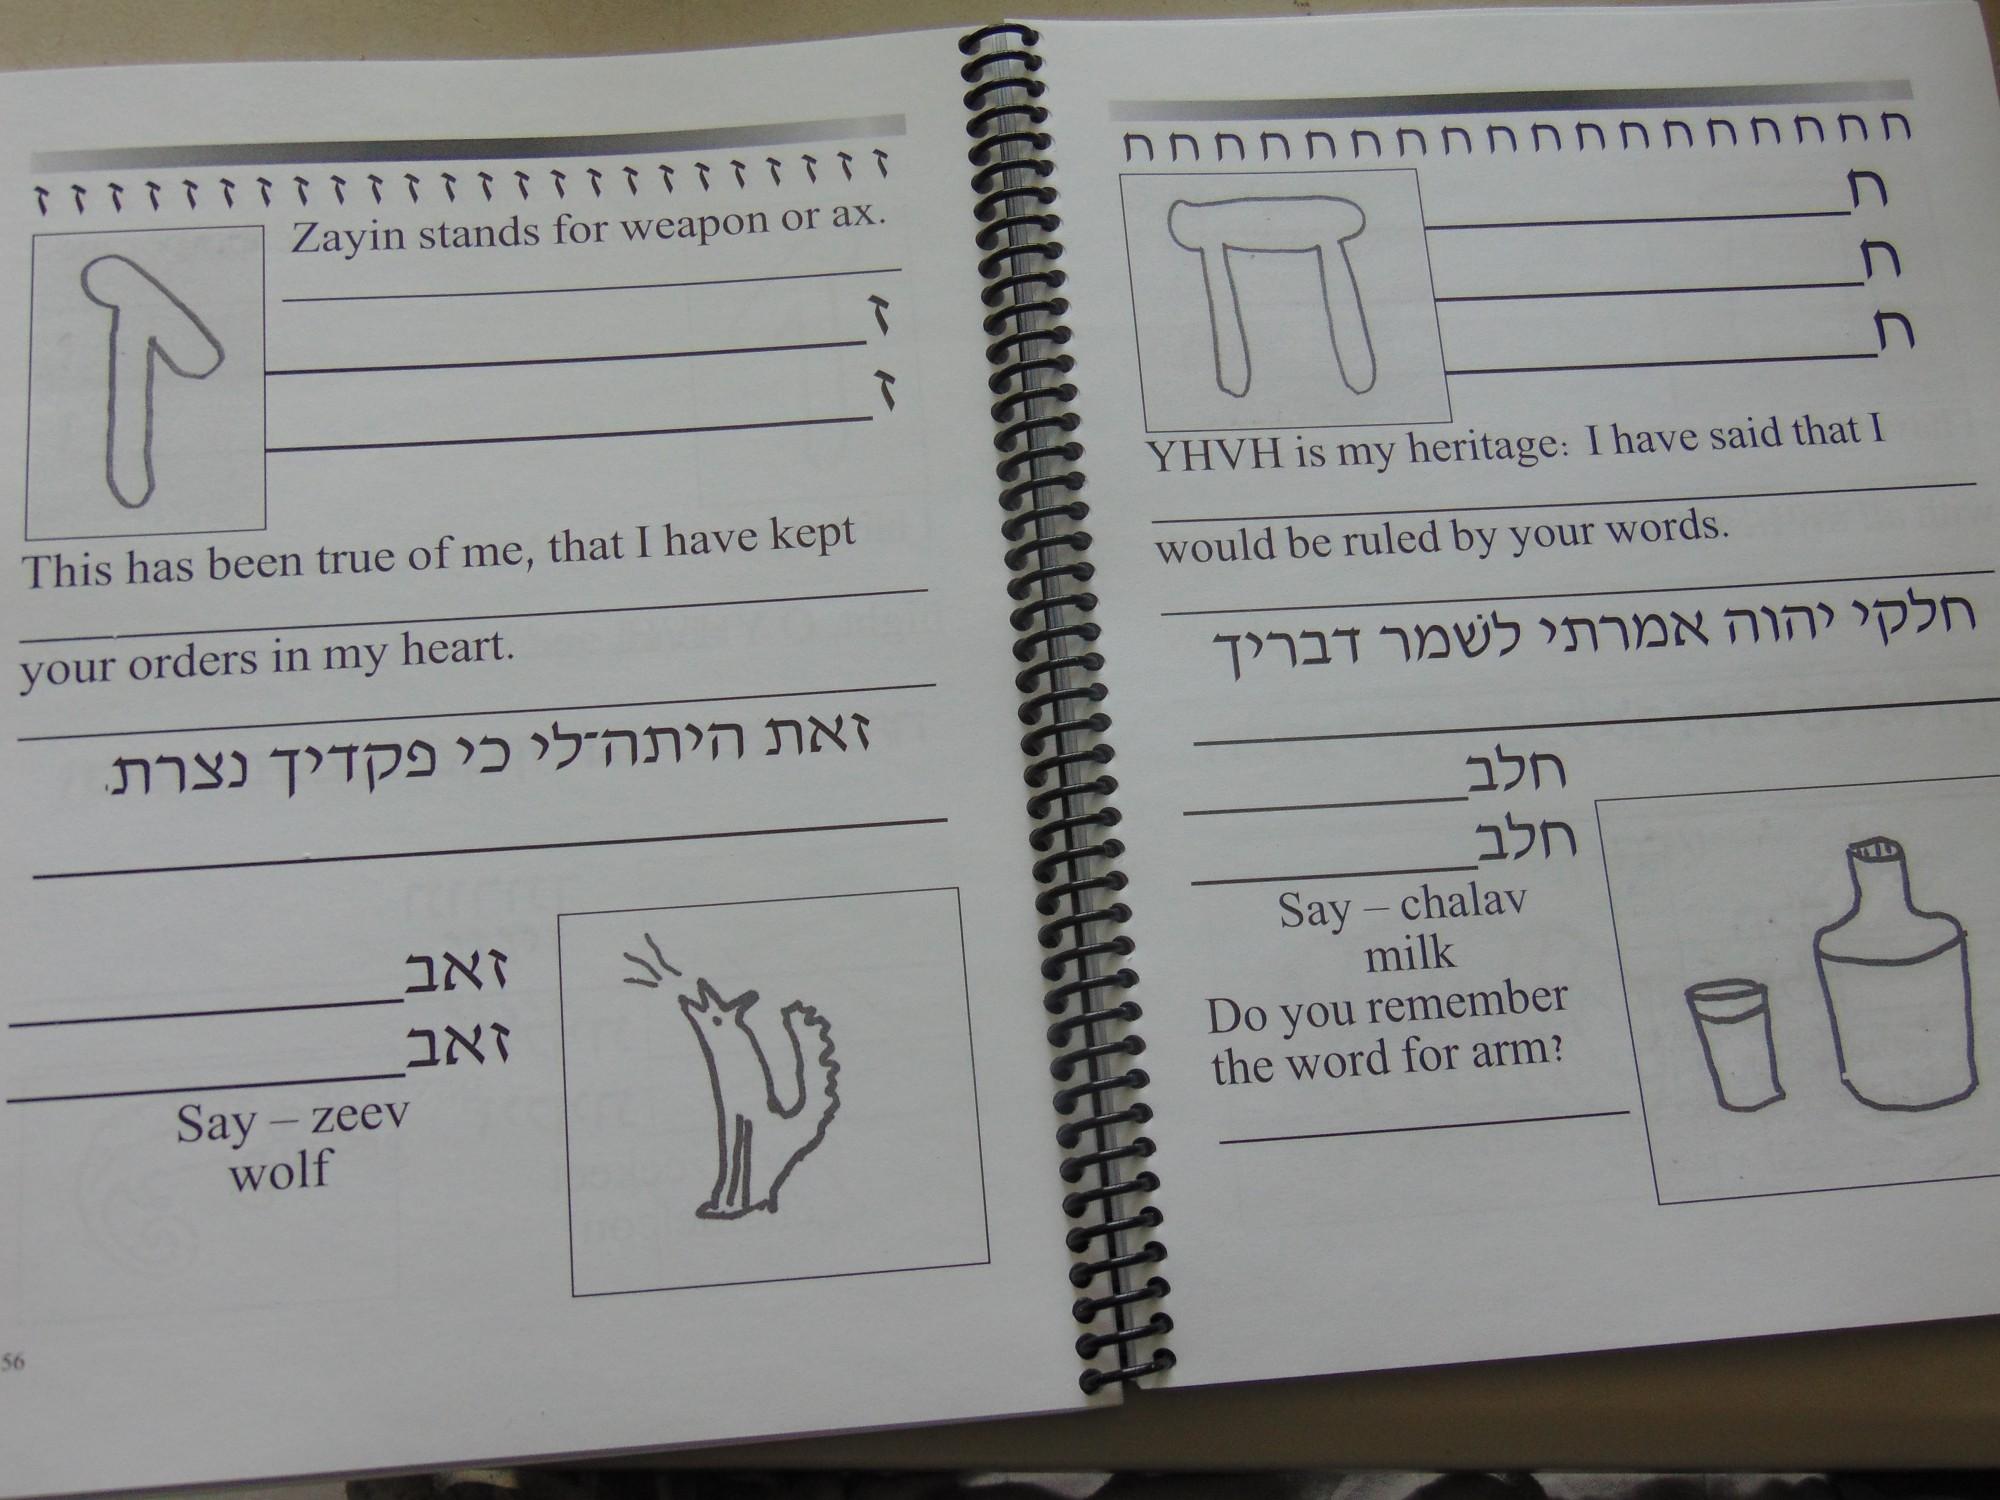 ז ז ז ז ז ז ז ז ז ז ז ז ז ז ז ז ז ז ז ז ז ז ז ז
Zayin stands for weapon or ax.
ז
ז
This has been true of me, that I have kept
your orders in my heart.
זאת היתה־לי כי פקדיך נצרתי
זאב
זאב
Say – zeev
wolf
56
ח ח ח ח ח ח ח ח ח ח ח ח ח ח ח ח ח ח
ח
ח
ח
YHVH is my heritage: I have said that I
would be ruled by your words.
חלקי יהוה אמרתי לשׁמר דבריך
חלב
חלב
Say – chalav
milk
Do you remember
the word for arm?